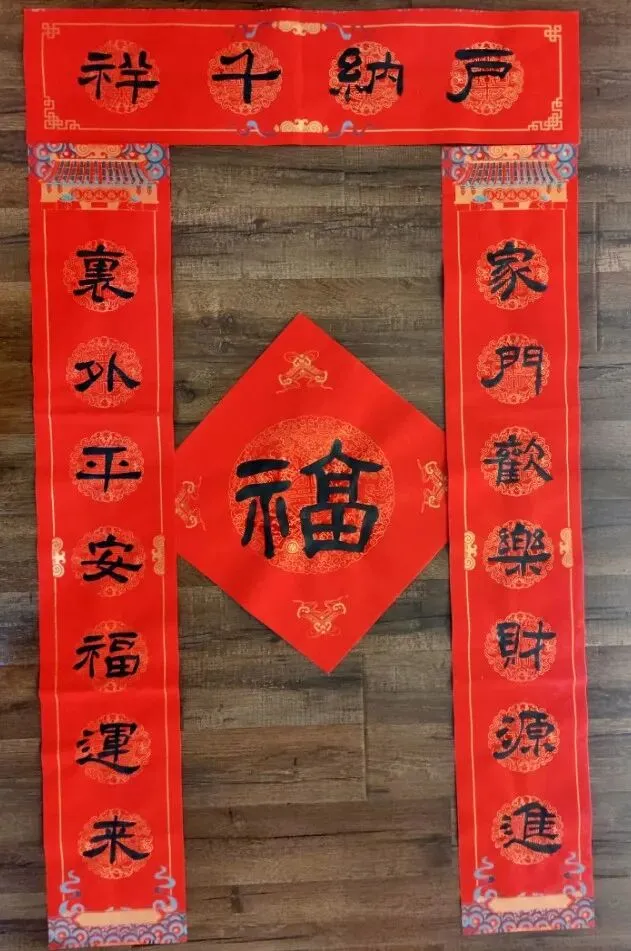 戶納千祥
家門歡樂財源進
裏外平安福運来
福